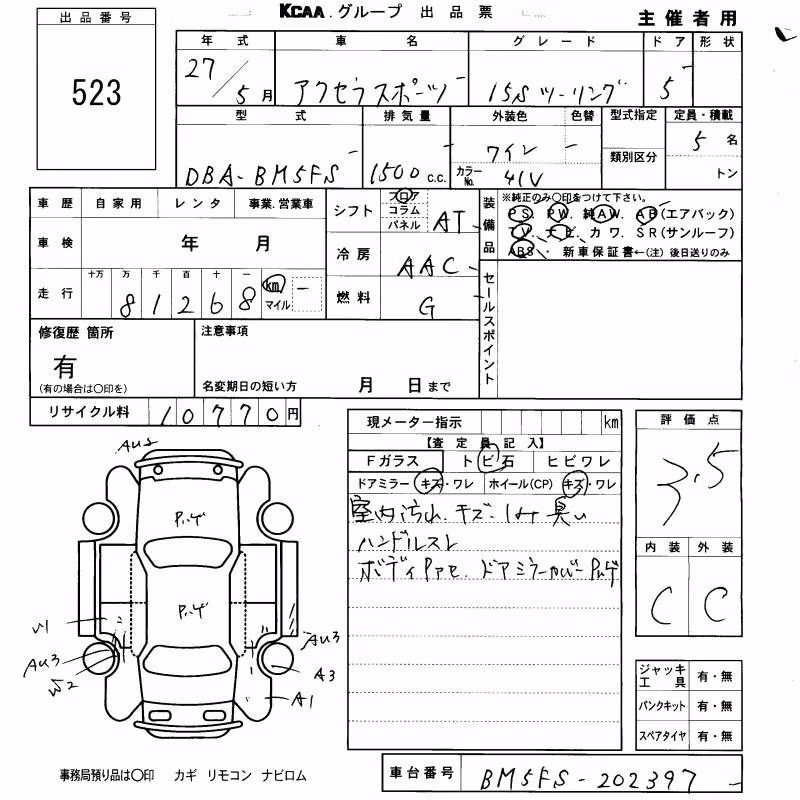 KCAA.グループ 出品票
主催者用
出品番号
523
年式 車名 グレード ドア 形状
27/5月 アクセラスポーツ 15Sツーリング 5
型式 排気量 外装色 色替 型式指定 定員・積載
DBA-BM5FS 1500c.c. ワイン 5名
カラーNo. 41V 類別区分 トン
車歴 自家用 レンタ 事業.営業車
車検 年 月
走行 十万 万 千 百 十 一
81268 km マイル
シフト フロア コラム パネル AT
冷房 AAC
燃料 G
装備品
※純正のみ〇印をつけて下さい。
PS. PW. 純AW. AB(エアバック)
TV. ナビ. カワ. SR(サンルーフ)
ABS. 新車保証書←(注)後日送りのみ
セールスポイント
修復歴 箇所
有
(有の場合は〇印を)
注意事項
名変期日の短い方 月 日まで
リサイクル料 10770円
現メーター指示 km
【査定員記入】
Fガラス トビ石 ヒビワレ
ドアミラー キズ・ワレ ホイール(CP) キズ・ワレ
室内汚れ.キズ.しみ臭い
ハンドルスレ
ボディPアセ.ドアミラーカバーPハゲ
評価点
3.5
内装 外装
C C
AU2
Pハゲ
Pハゲ
W1
AU3
W2
AU3
A3
A1
ジャッキ工具 有・無
パンクキット 有・無
スペアタイヤ 有・無
事務局預り品は〇印 カギ リモコン ナビロム
車台番号 BM5FS-202397